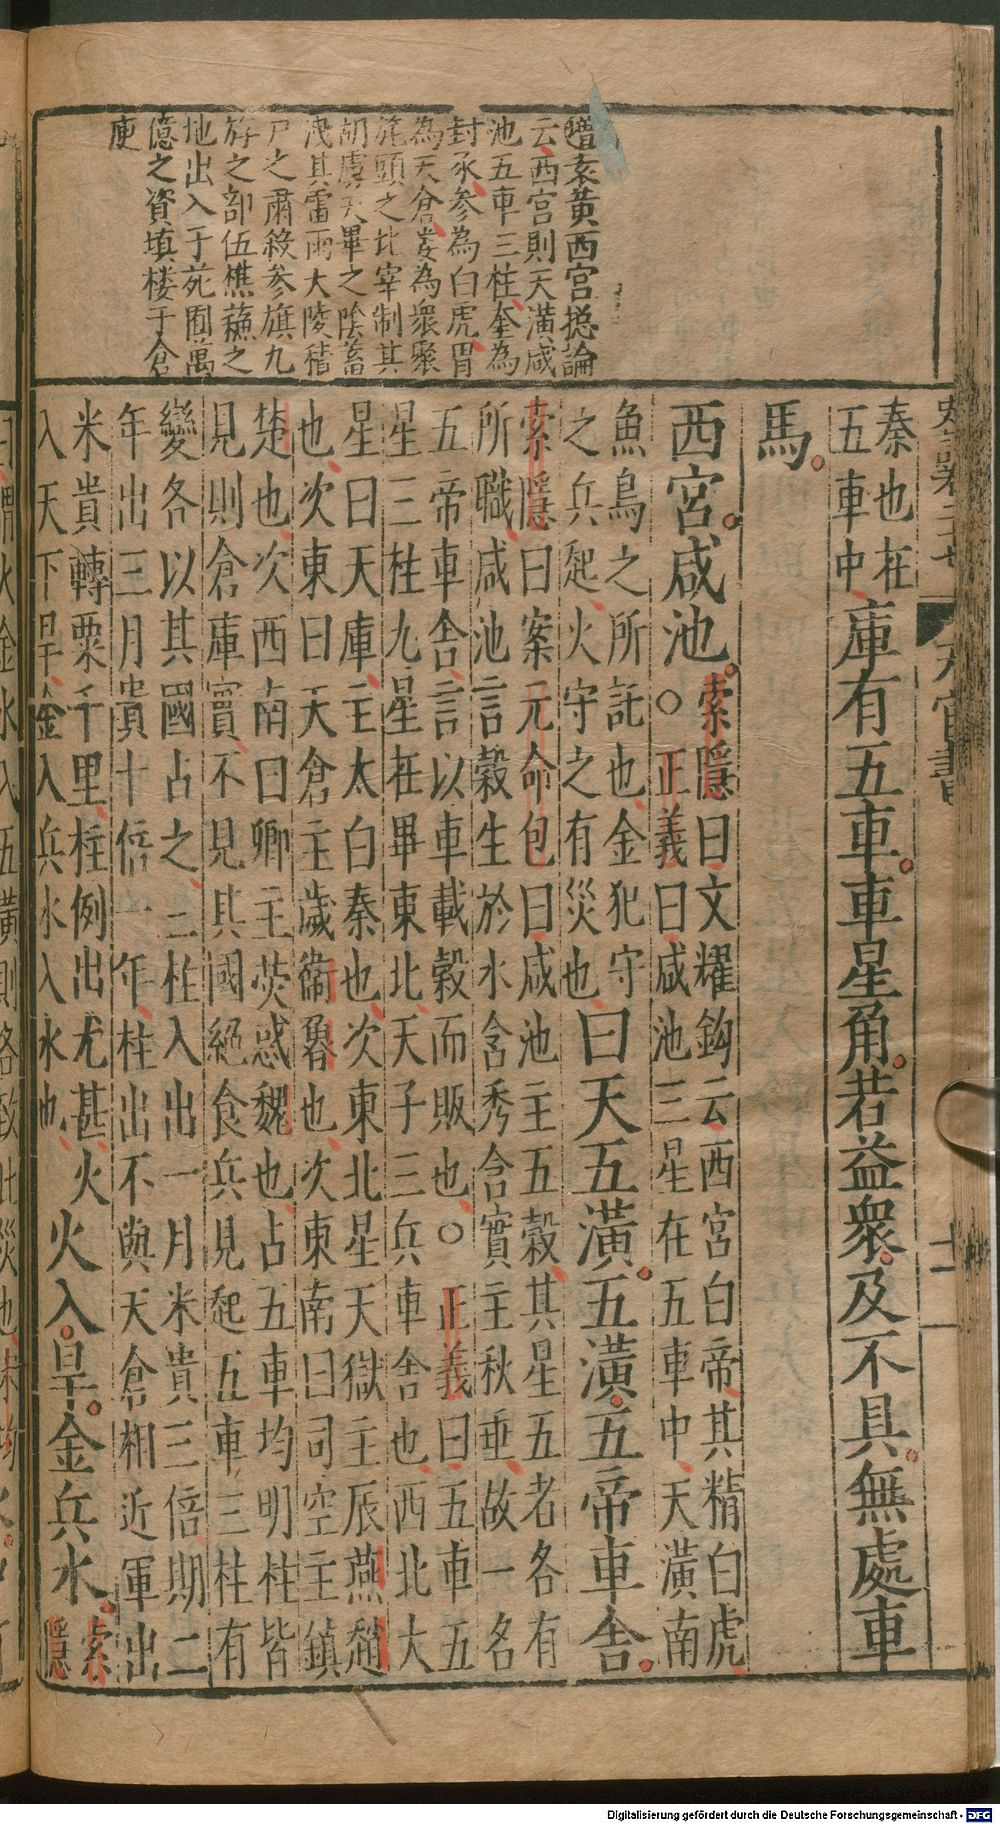 袁黃西宮揔論
云西宮則天潢咸
池五車三柱奎為
封豕參為白虎胃
為天倉婁為衆聚
旄頭之北宰制其
胡虜天畢之陰蓄
洩其雷雨大陵積
尸之肅殺參旗九
斿之部伍樵蘇之
地出入于苑囿萬
億之資填棲于倉
庾
天官書
十一
秦也在
五車中
庫有五車車星角若益衆及不具無處車
馬
西宮咸池
索隱曰文耀鈎云西宮白帝其精白虎
○正義曰咸池三星在五車中天潢南
魚鳥之所託也金犯守
之兵起火守之有災也
曰天五潢五潢五帝車舍
索隱曰案元命包曰咸池主五穀其星五者各有
所職咸池言穀生於水含秀含實主秋垂故一名
五帝車舍言以車載穀而販也○正義曰五車五
星三柱九星在畢東北天子三兵車舍也西北大
星曰天庫主太白秦也次東北星天獄主辰燕趙
也次東曰天倉主歲衞魯也次東南曰司空主鎮
楚也次西南曰卿主熒惑魏也占五車均明柱皆
見則倉庫實不見其國絕食兵見起五車三柱有
變各以其國占之三柱入出一月米貴三倍期二
年出三月貴十倍一年柱出不與天倉相近軍出
米貴轉粟千里柱例出尤甚火
入天下旱金入兵水入水也
火入旱金兵水
索
隱
Digitalisierung gefördert durch die Deutsche Forschungsgemeinschaft - DFG